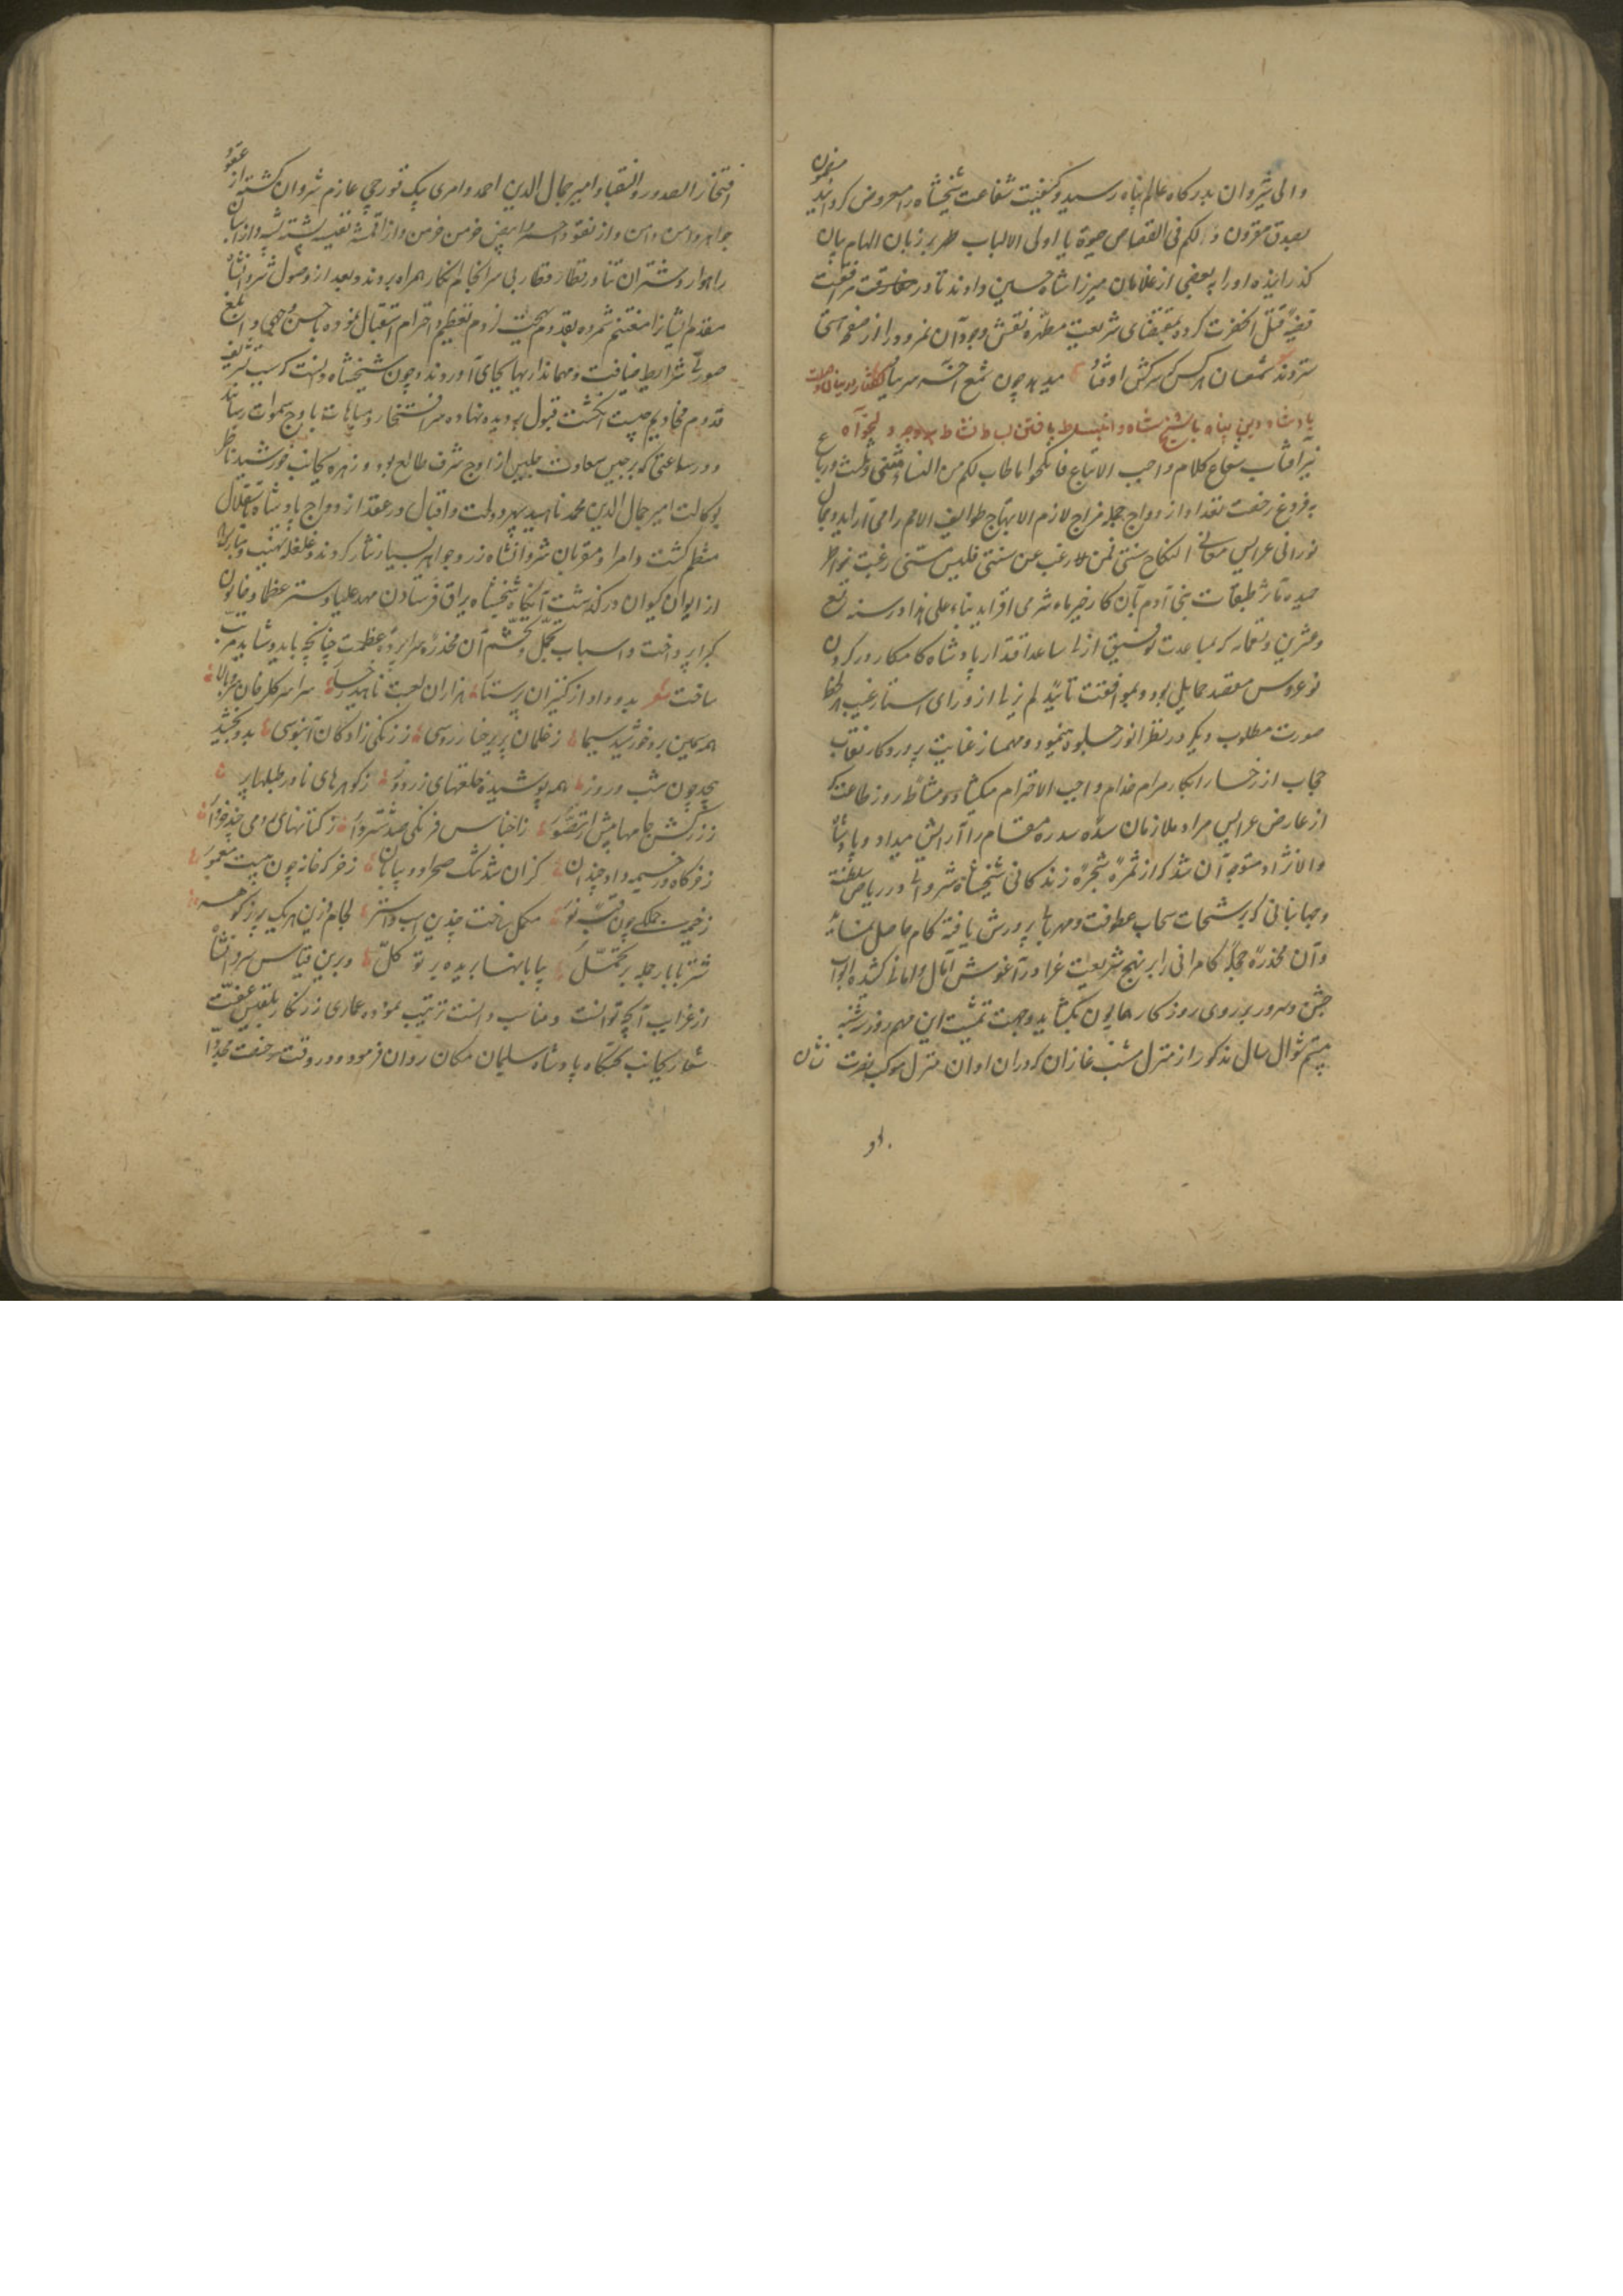 والی شیروان بدرگاه عالم پناه رسید و کیفیت شفاعت شیخشاه را معروض گردانید مضمون
بصدق مقرون ولکم فی القصاص حیوة یا اولی الالباب بر زبان الهام بیان
گذرانیده او را ببعضی از غلامان میرزا شاه حسین دادند تا در
قضیه قتل آنحضرت کرده بمقتضای شریعت مطهره نقش وجود آن مردود را از صفحه هستی
ستردند شمعسان هر کس که سرکشی او فتاد میدهد چون شمع آخر سر بباد
پادشاه دین پناه با شیخ شاه و انبساط یافتن بساط نشاط
نیر آفتاب شعاع کلام واجب الاتباع فانکحوا ما طاب لکم من النساء مثنی و ثلث و رباع
بفروغ رخصت تعداد ازدواج جمله مزاج لازم الابتهاج طوایف الامم را می آراید و جمال
نورانی عرایس معانی النکاح سنتی فمن رغب عن سنتی فلیس منی رغبت خواطر
حمیده مآثر طبقات بنی آدم بآن کار خیر ماه شرمی افزاید بناء علی هذا در سنه تسع
و عشرین و تسعمائه که بمساعدت توفیق ازلی ساعد اقتدار پادشاه کامکار در گردن
نوعروس مقصد حمایل بود و بموافقت تایید لم یزلی از ورای استار غیب هر لحظه
صورت مطلوب دیگر در نظر انور جلوه مینمود و مهمساز عنایت پروردگار نقاب
حجاب از رخسار ابکار مرام خدام واجب الاحترام میکشاد و مشاطه روزگار
از عارض عرایس مراد ملازمان سده سدره مقام را آرایش میداد و پادشاه
والانژاد متوجه آن شد که از ثمره شجره زندگانی شیخشاه شروانی در ریاض سلطنت
و جهانبانی که برشحات سحاب عطوفت و مهربانی پرورش یافته کام حاصل نماید
و آن مخدره حجله کامرانی را بر نهج شریعت غرا در آغوش آمال و امانی کشیده ابواب
جشن و سرور بر روی روزگار همایون بگشاید و بجهت تمشیت این مهم روز شنبه
بیستم شوال سال مذکور از منزل شنب غازان که دران اوان منزل موکب نصرت نشان
افتخار الصدور و النقبا و امیر جمال الدین احمد و امری بیک قورچی عازم شروان گشته از عقود
جواهر دامن دامن و از نقود احمر و ابیض خرمن خرمن و از اقمشه نفیسه پشته پشته و از اسبان
راهوار و شتران تناور قطار قطار بی سرانجام آنکار همراه بردند و بعد از وصول شروانشاه
مقدم ایشانرا مغتنم شمرده بقدوم بهجت لزوم تعظیم و احترام استقبال نموده باحسن وجهی و ابلغ
صورتی شرایط ضیافت و مهمانداریها بجای آوردند و چون شیخشاه دانست که سبب تشریف
قدوم مخادیم چیست انگشت قبول بر دیده نهاده سر افتخار و مباهات باوج سموات رسانید
و در ساعتی که برجیس سعادت جلیس از اوج شرف طالع بود و زهره بجانب خورشید ناظر
بوکالت امیر جمال الدین محمد ناهید سپهر دولت و اقبال در عقد ازدواج پادشاه باستقلال
منتظم گشت و امرا و مقربان شروانشاه زر و جواهر بسیار نثار کردند و غلغله تهنیت و مبارکباد
از ایوان کیوان درگذشت آنگاه شیخشاه بیراق فرستادن مهد علیا و ستر عظما و خاتون
کبرا پرداخت و اسباب تجمل و تحشم آن مخدره سراپرده عظمت چنانچه باید و شاید مرتب
ساخت شعر بدو داد از کنیزان پرستار هزاران لعبت ناهید رخسار سراسر گلرخان سرو بالا
همه سیمین بر و خورشید سیما ز غلمان پریرخسار روسی ز زنگی زادگان آبنوسی بدو بخشید
بیحد چون شب و روز همه پوشیده خلعتهای زردوز ز گوهرهای نادر طبلها پر
ز زرکش جامها بیش از تصور ز اجناس فرنگی صد شتروار ز کتانهای رومی چند خروار
ز خرگاه و ز خیمه داد چندان کزان شد تنگ صحرا و بیابان ز خرگه خانه چون بیت معمور
ز خیمه جملگی چون قبه نور مکمل ساخت چندین اسب و استر لجام و زین هر یک پر ز گوهر
شتر با بار جمله پر تجمل بیابانها بریده بر توکل و برین قیاس شروانشاه
از غرایب آنچه توانست و مناسب دانست ترتیب نموده عماری زرنگار بلقیس عفت
شعار بجانب تختگاه پادشاه سلیمان مکان روان فرمود و در وقت رخصت مجددا